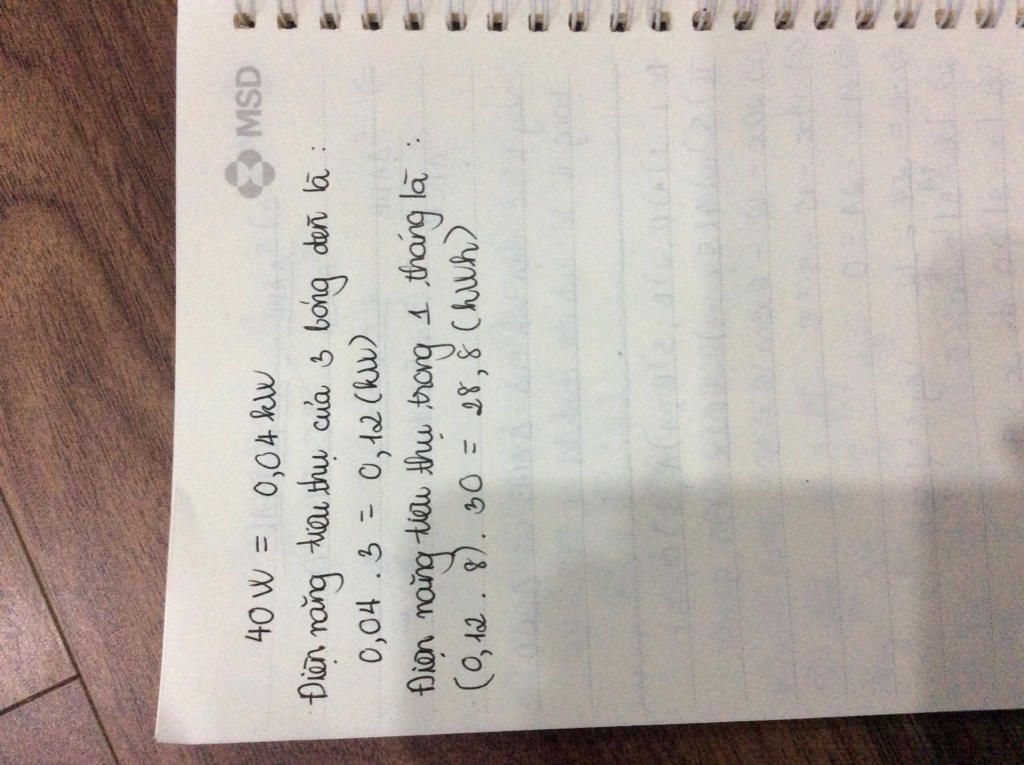 MSD
40W = 0,04kW
Điện năng tiêu thụ của 3 bóng đèn là :
0,04 . 3 = 0,12 (kW)
Điện năng tiêu thụ trong 1 tháng là :
(0,12 . 8) . 30 = 28,8 (kWh)